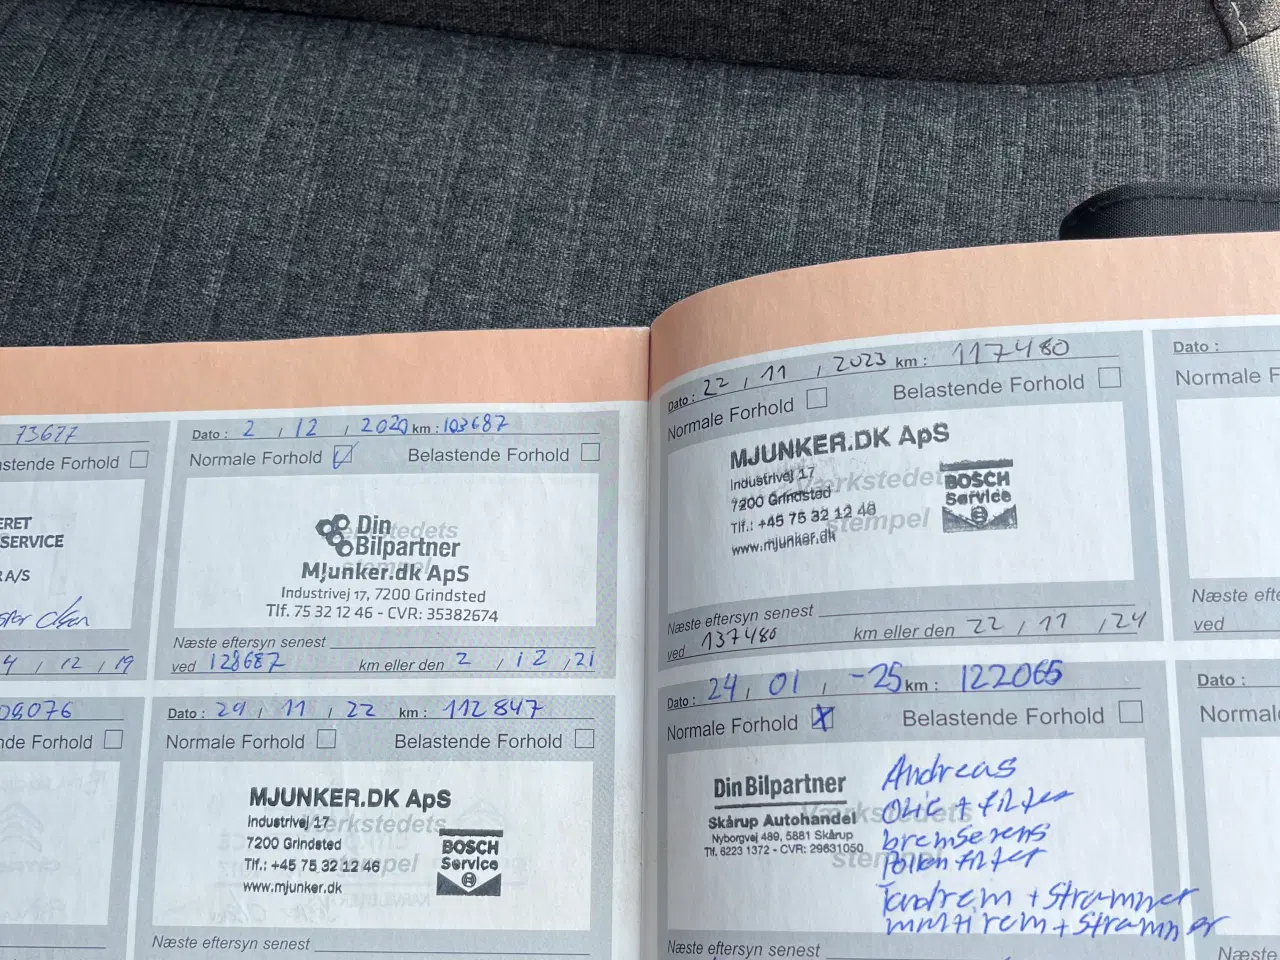 73677
astende Forhold
ERET
SERVICE
A/S
4 / 12 / 19
08076
nde Forhold
Dato : 2 / 12 / 2020 km : 103687
Normale Forhold Belastende Forhold
Din
Bilpartner
Værkstedets
stempel
MJunker.dk ApS
Industrivej 17, 7200 Grindsted
Tlf. 75 32 12 46 - CVR: 35382674
Næste eftersyn senest
ved 128687 km eller den 2 / 12 / 21
Dato : 29 / 11 / 22 km : 112847
Normale Forhold Belastende Forhold
MJUNKER.DK ApS
Industrivej 17
Værkstedets
7200 Grindsted
stempel
Tlf.: +45 75 32 12 46
www.mjunker.dk
BOSCH
Service
Næste eftersyn senest
Dato : 22 / 11 / 2023 km : 117480
Normale Forhold Belastende Forhold
MJUNKER.DK ApS
Industrivej 17
Værkstedets
7200 Grindsted
stempel
Tlf.: +45 75 32 12 46
www.mjunker.dk
BOSCH
Service
Næste eftersyn senest
ved 137480 km eller den 22 / 11 / 24
Dato : 24 / 01 / -25 km : 122065
Normale Forhold X Belastende Forhold
Din Bilpartner
Værkstedets
Skårup Autohandel
Nyborgvej 489, 5881 Skårup
Tlf. 6223 1372 - CVR: 29631050
stempel
Andreas
Olie + filter
bremserens
Pollen filter
Tandrem + Strammer
multirem + Strammer
Næste eftersyn senest
Dato :
Normale F
Næste efte
ved
Dato :
Normale
Næste